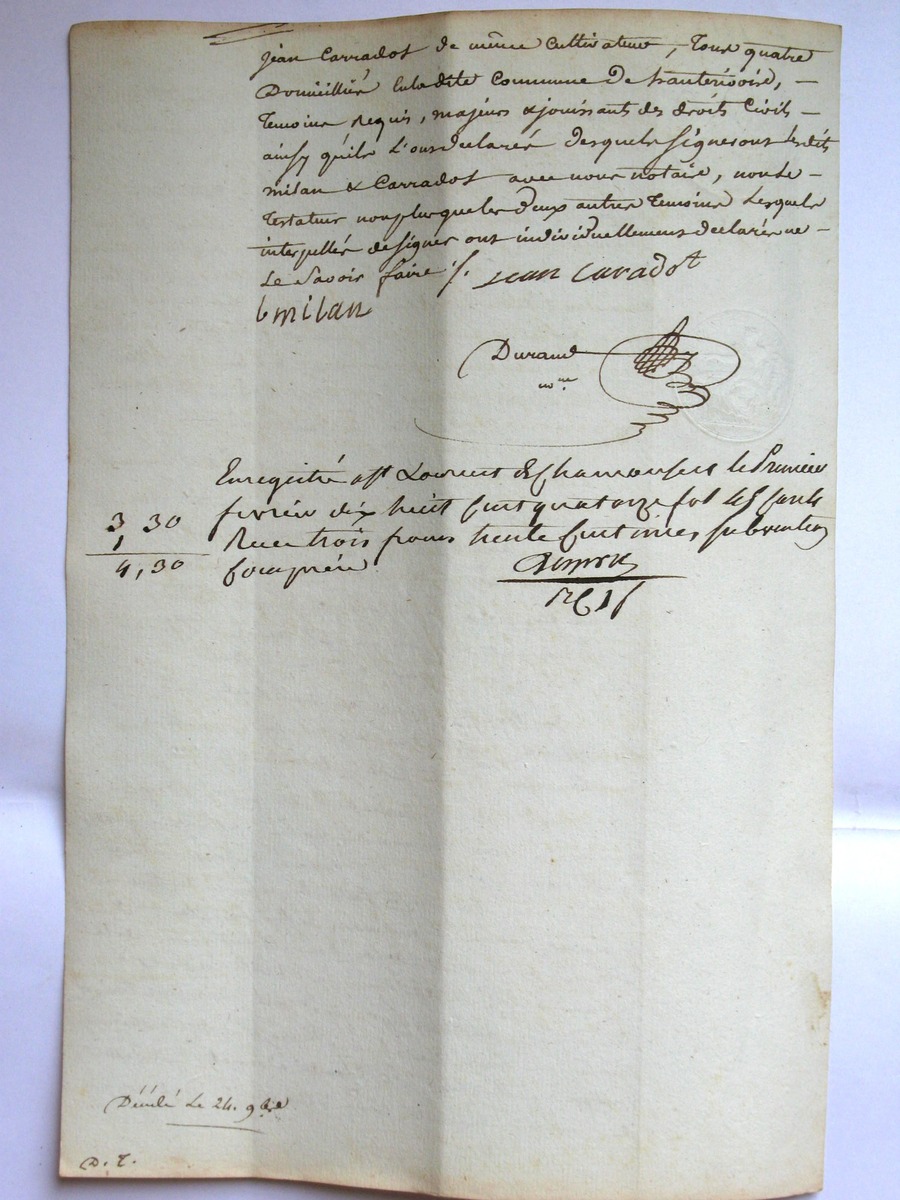 Jean Carradot de même Cultivateur, Tous quatre
Domicilliés en ladite Commune de
Temoins requis, majeurs & jouissants des droits Civils
ainsy qu'ils l'ont declaré desquels signeront lesdits
milan & Carradot avec nous notaire, non le
Testateur non plus que les deux autres Temoins Lesquels
interpellés de signer ont individuellement declarés ne
Le Savoir faire ./.
Jean Caradot
milan
Durand
nre
Enregistré a St Laurent de Chamousset le Premier
fevrier dix huit Cent quatorze fol
3,30
Recu trois francs trente Centimes subvention
1
4,30
Comprise
Décédé Le 24. 9bre
D. T.